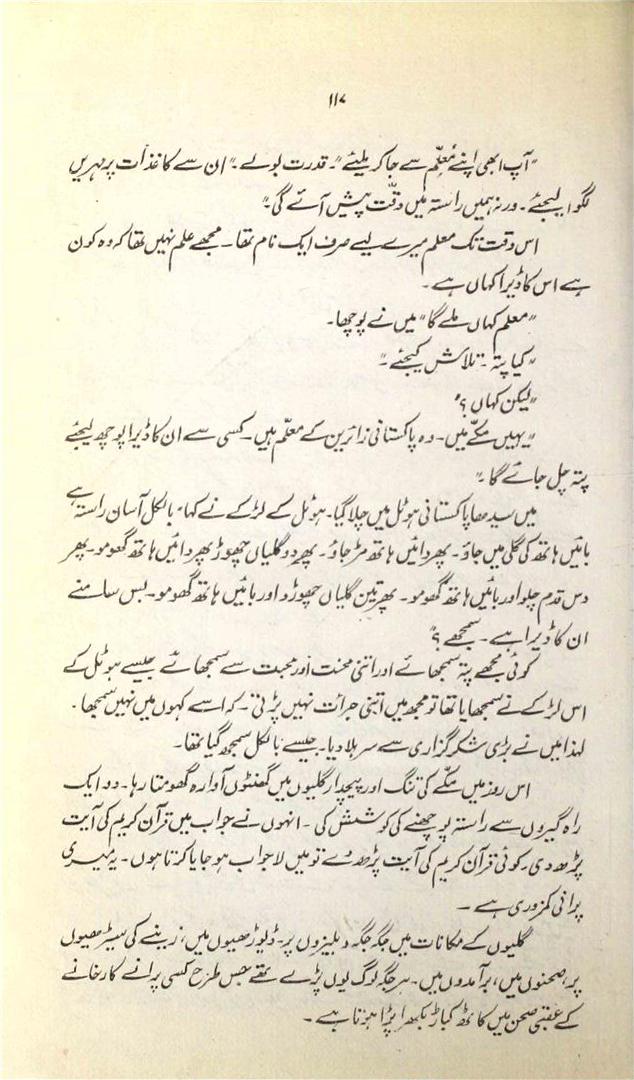 ۱۱۷
"آپ ابھی اپنے مُعلّم سے جا کر ملیئے"۔ قدرت بولے۔ "ان سے کاغذات پر مہریں
لگوا لیجئے۔ ورنہ ہمیں راستہ میں دقّت پیش آئے گی۔"
اس وقت تک معلم میرے لیے صرف ایک نام تھا۔ مجھے علم نہیں تھا کہ وہ کون
ہے اس کا ڈیرا کہاں ہے۔
"معلم کہاں ملے گا" میں نے پوچھا۔
"کیا پتہ۔ تلاش کیجئے۔"
"لیکن کہاں؟"
"یہیں مکّے میں۔ وہ پاکستانی زائرین کے معلّم ہیں۔ کسی سے ان کا ڈیرا پوچھ لیجئے
پتہ چل جائے گا۔"
میں سیدھا پاکستانی ہوٹل میں چلا گیا۔ ہوٹل کے لڑکے نے کہا "بالکل آسان راستہ ہے
بائیں ہاتھ کی گلی میں جاؤ۔ پھر دائیں ہاتھ مڑ جاؤ۔ پھر دو گلیاں چھوڑ پھر دائیں ہاتھ گھومو۔ پھر
دس قدم چلو اور بائیں ہاتھ گھومو۔ پھر تین گلیاں چھوڑ دو اور بائیں ہاتھ گھومو۔ بس سامنے
ان کا ڈیرا ہے۔ سمجھے؟"
کوئی مجھے پتہ سمجھائے اور اتنی محنت اور محبت سے سمجھائے جیسے ہوٹل کے
اس لڑکے نے سمجھایا تھا تو مجھ میں اتنی جرات نہیں پڑتی۔ کہ اسے کہوں میں نہیں سمجھا۔
لہذا میں نے بڑی شکر گزاری سے سر ہلا دیا۔ جیسے بالکل سمجھ گیا تھا۔
اس روز میں مکّے کی تنگ اور پیچدار گلیوں میں گھنٹوں آوارہ گھومتا رہا۔ دو ایک
راہ گیروں سے راستہ پوچھنے کی کوشش کی۔ انہوں نے جواب میں قرآن کریم کی آیت
پڑھ دی۔ کوئی قرآن کریم کی آیت پڑھ دے تو میں لاجواب ہو جایا کرتا ہوں۔ یہ میری
پرانی کمزوری ہے۔
گلیوں کے مکانات میں جگہ جگہ دہلیزوں پر۔ ڈیوڑھیوں میں، زینے کی سیڑھیوں
پر، صحنوں میں، برآمدوں میں۔ ہر جگہ لوگ یوں پڑے تھے جس طرح کسی پرانے کارخانے
کے عقبی صحن میں کاٹھ کباڑ بکھرا پڑا ہوتا ہے۔